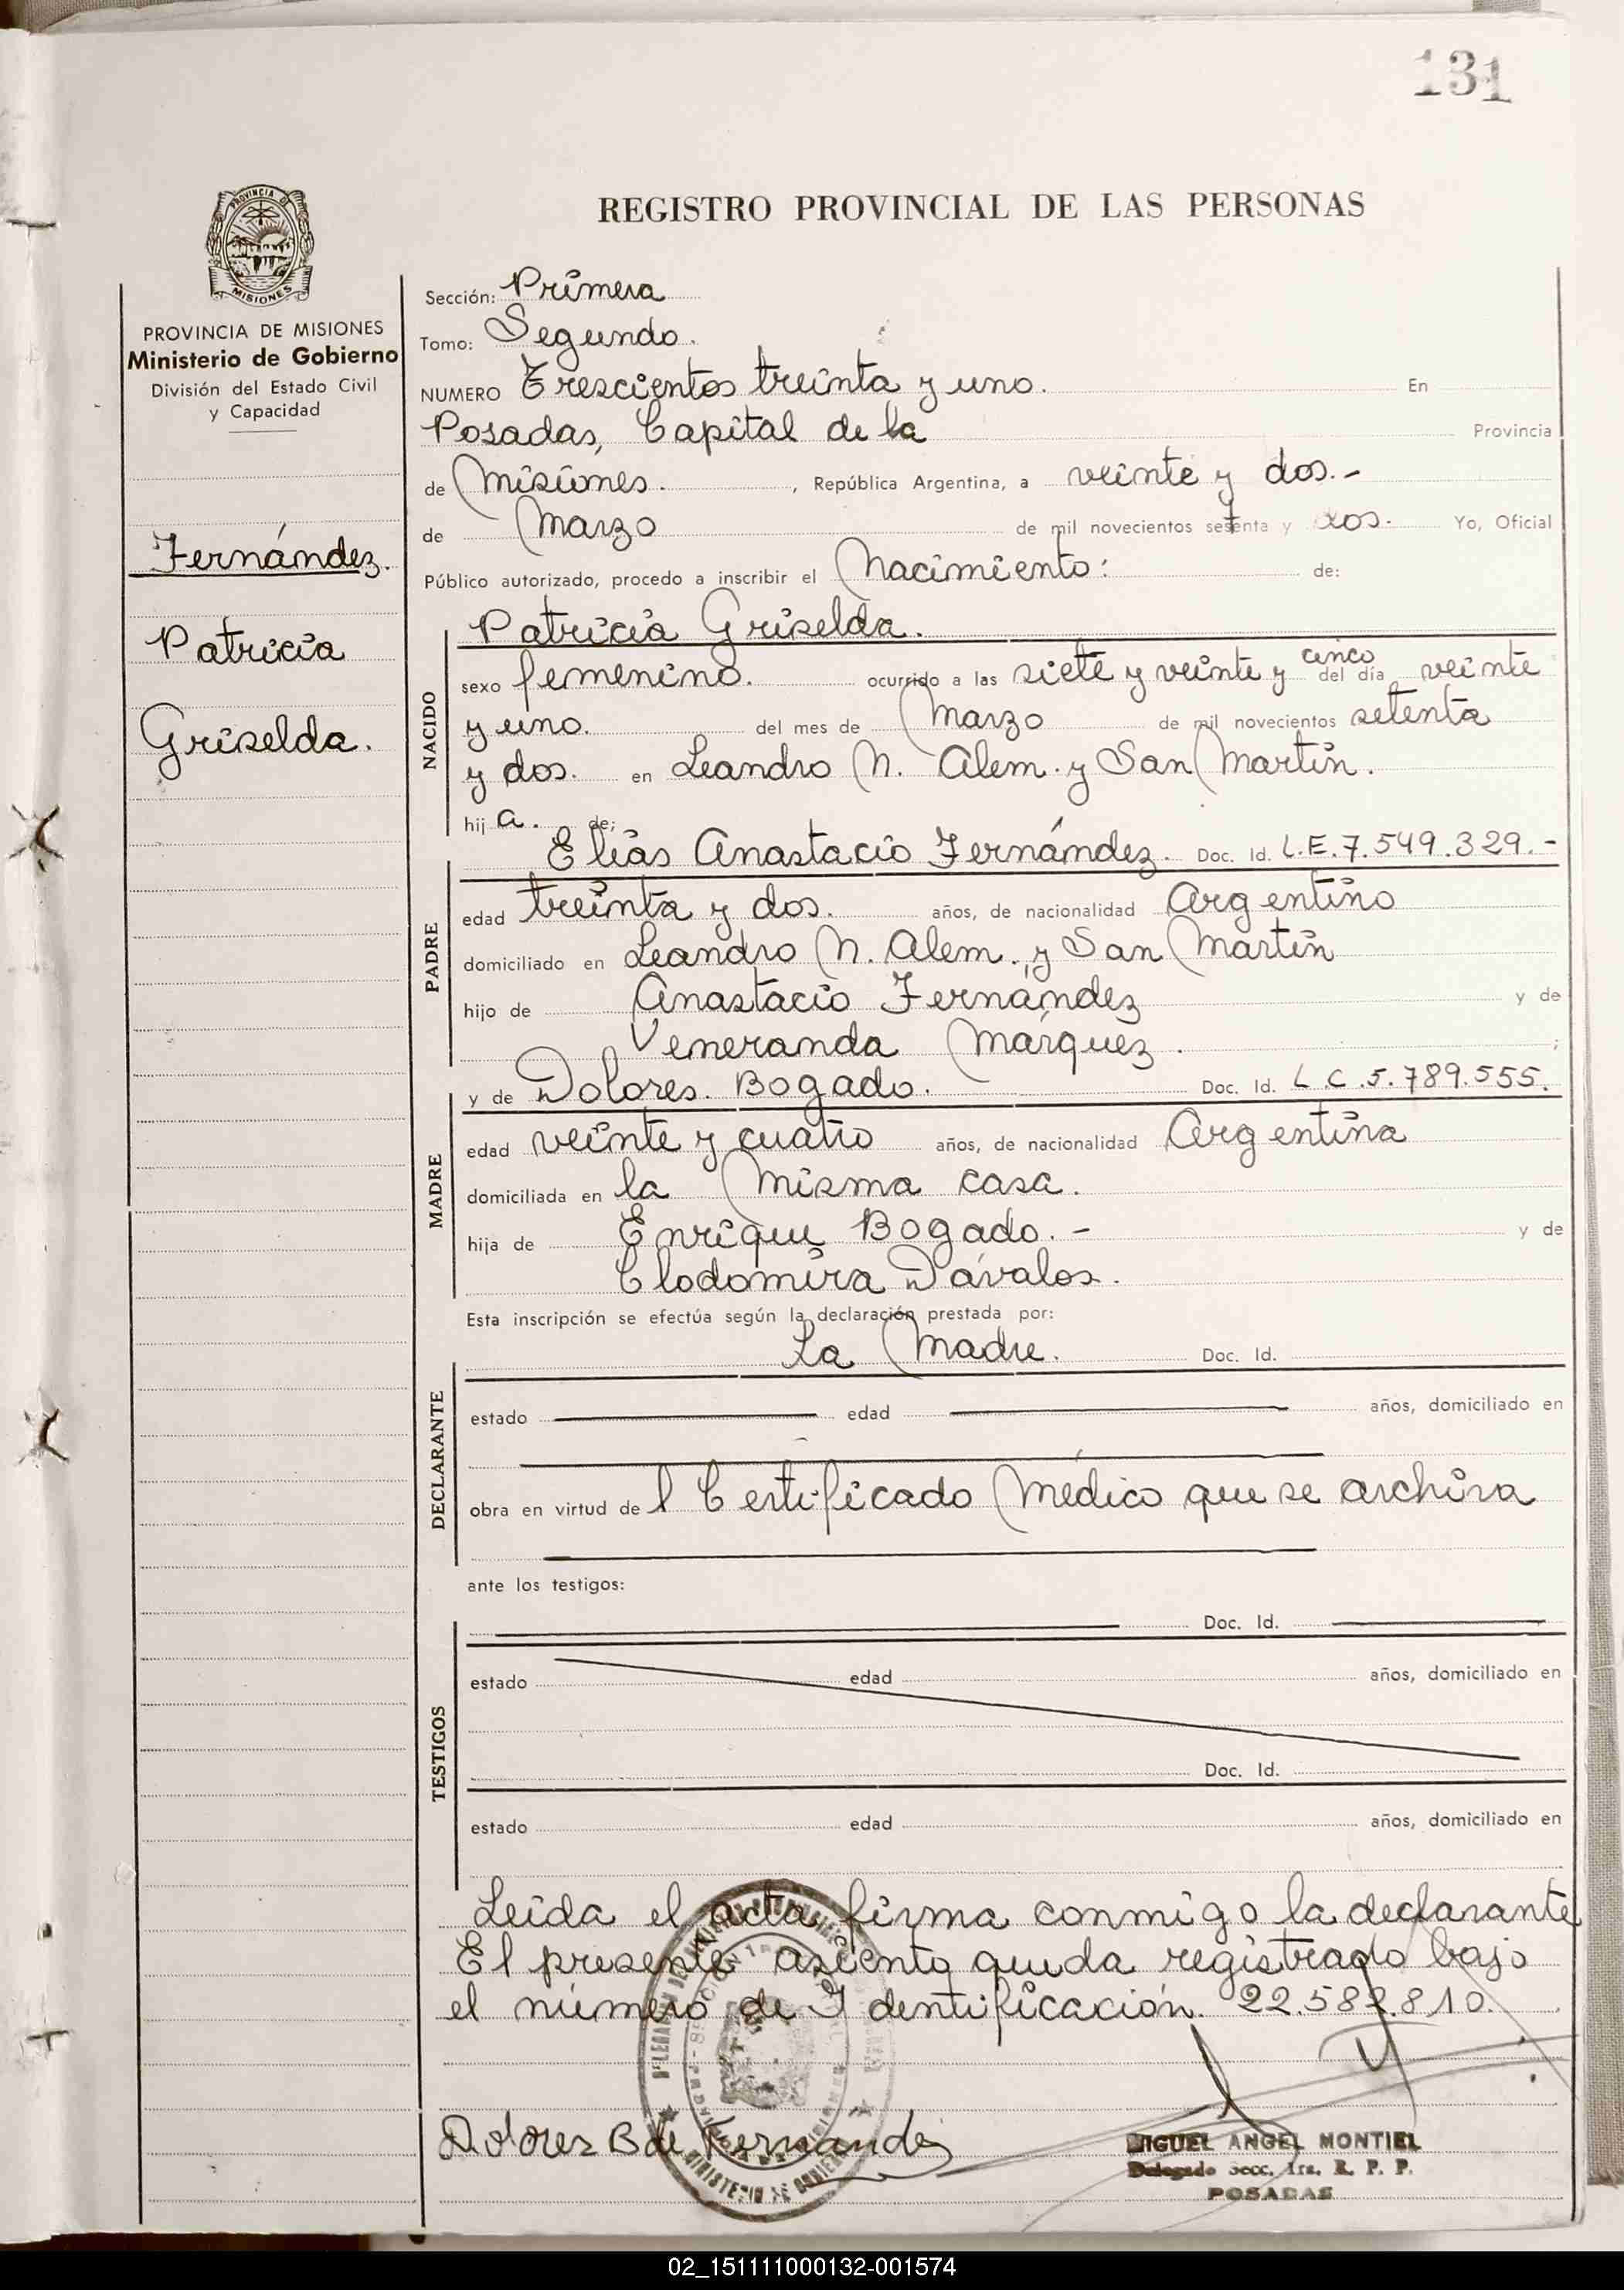 131
REGISTRO PROVINCIAL DE LAS PERSONAS
PROVINCIA DE
MISIONES
PROVINCIA DE MISIONES
Ministerio de Gobierno
División del Estado Civil
y Capacidad
Fernández.
Patricia
Griselda.
Sección: Primera
Tomo: Segundo.
NUMERO Trescientos treinta y uno. En
Posadas, Capital de la Provincia
de Misiones. , República Argentina, a veinte y dos.-
de Marzo de mil novecientos setenta y dos. Yo, Oficial
Público autorizado, procedo a inscribir el Nacimiento: de:
NACIDO
Patricia Griselda.
sexo femenino. ocurrido a las siete y veinte y cinco del día veinte
y uno. del mes de Marzo de mil novecientos setenta
y dos. en Leandro N. Alem. y San Martín.
hij a. de;
PADRE
Elías Anastacio Fernández. Doc. Id. L.E. 7.549.329.-
edad treinta y dos. años, de nacionalidad Argentino
domiciliado en Leandro N. Alem. y San Martín
hijo de Anastacio Fernández y de
Veneranda Márquez. ;
MADRE
y de Dolores. Bogado. Doc. Id. L.C.5.789.555.
edad veinte y cuatro años, de nacionalidad Argentina
domiciliada en la Misma casa.
hija de Enrique Bogado.- y de
Clodomira Dávalos.
Esta inscripción se efectúa según la declaración prestada por:
DECLARANTE
La Madre. Doc. Id.
estado edad años, domiciliado en
obra en virtud de l Certificado Médico que se archiva
ante los testigos:
TESTIGOS
Doc. Id.
estado edad años, domiciliado en
Doc. Id.
estado edad años, domiciliado en
Leida el acta firma conmigo la declarante
El presente asiento queda registrado bajo
el número de Identificación. 22.582.810.
Dolores B de Fernandez
MIGUEL ANGEL MONTIEL
Delegado Secc. 1ra. R. P. P.
POSADAS
02_151111000132-001574